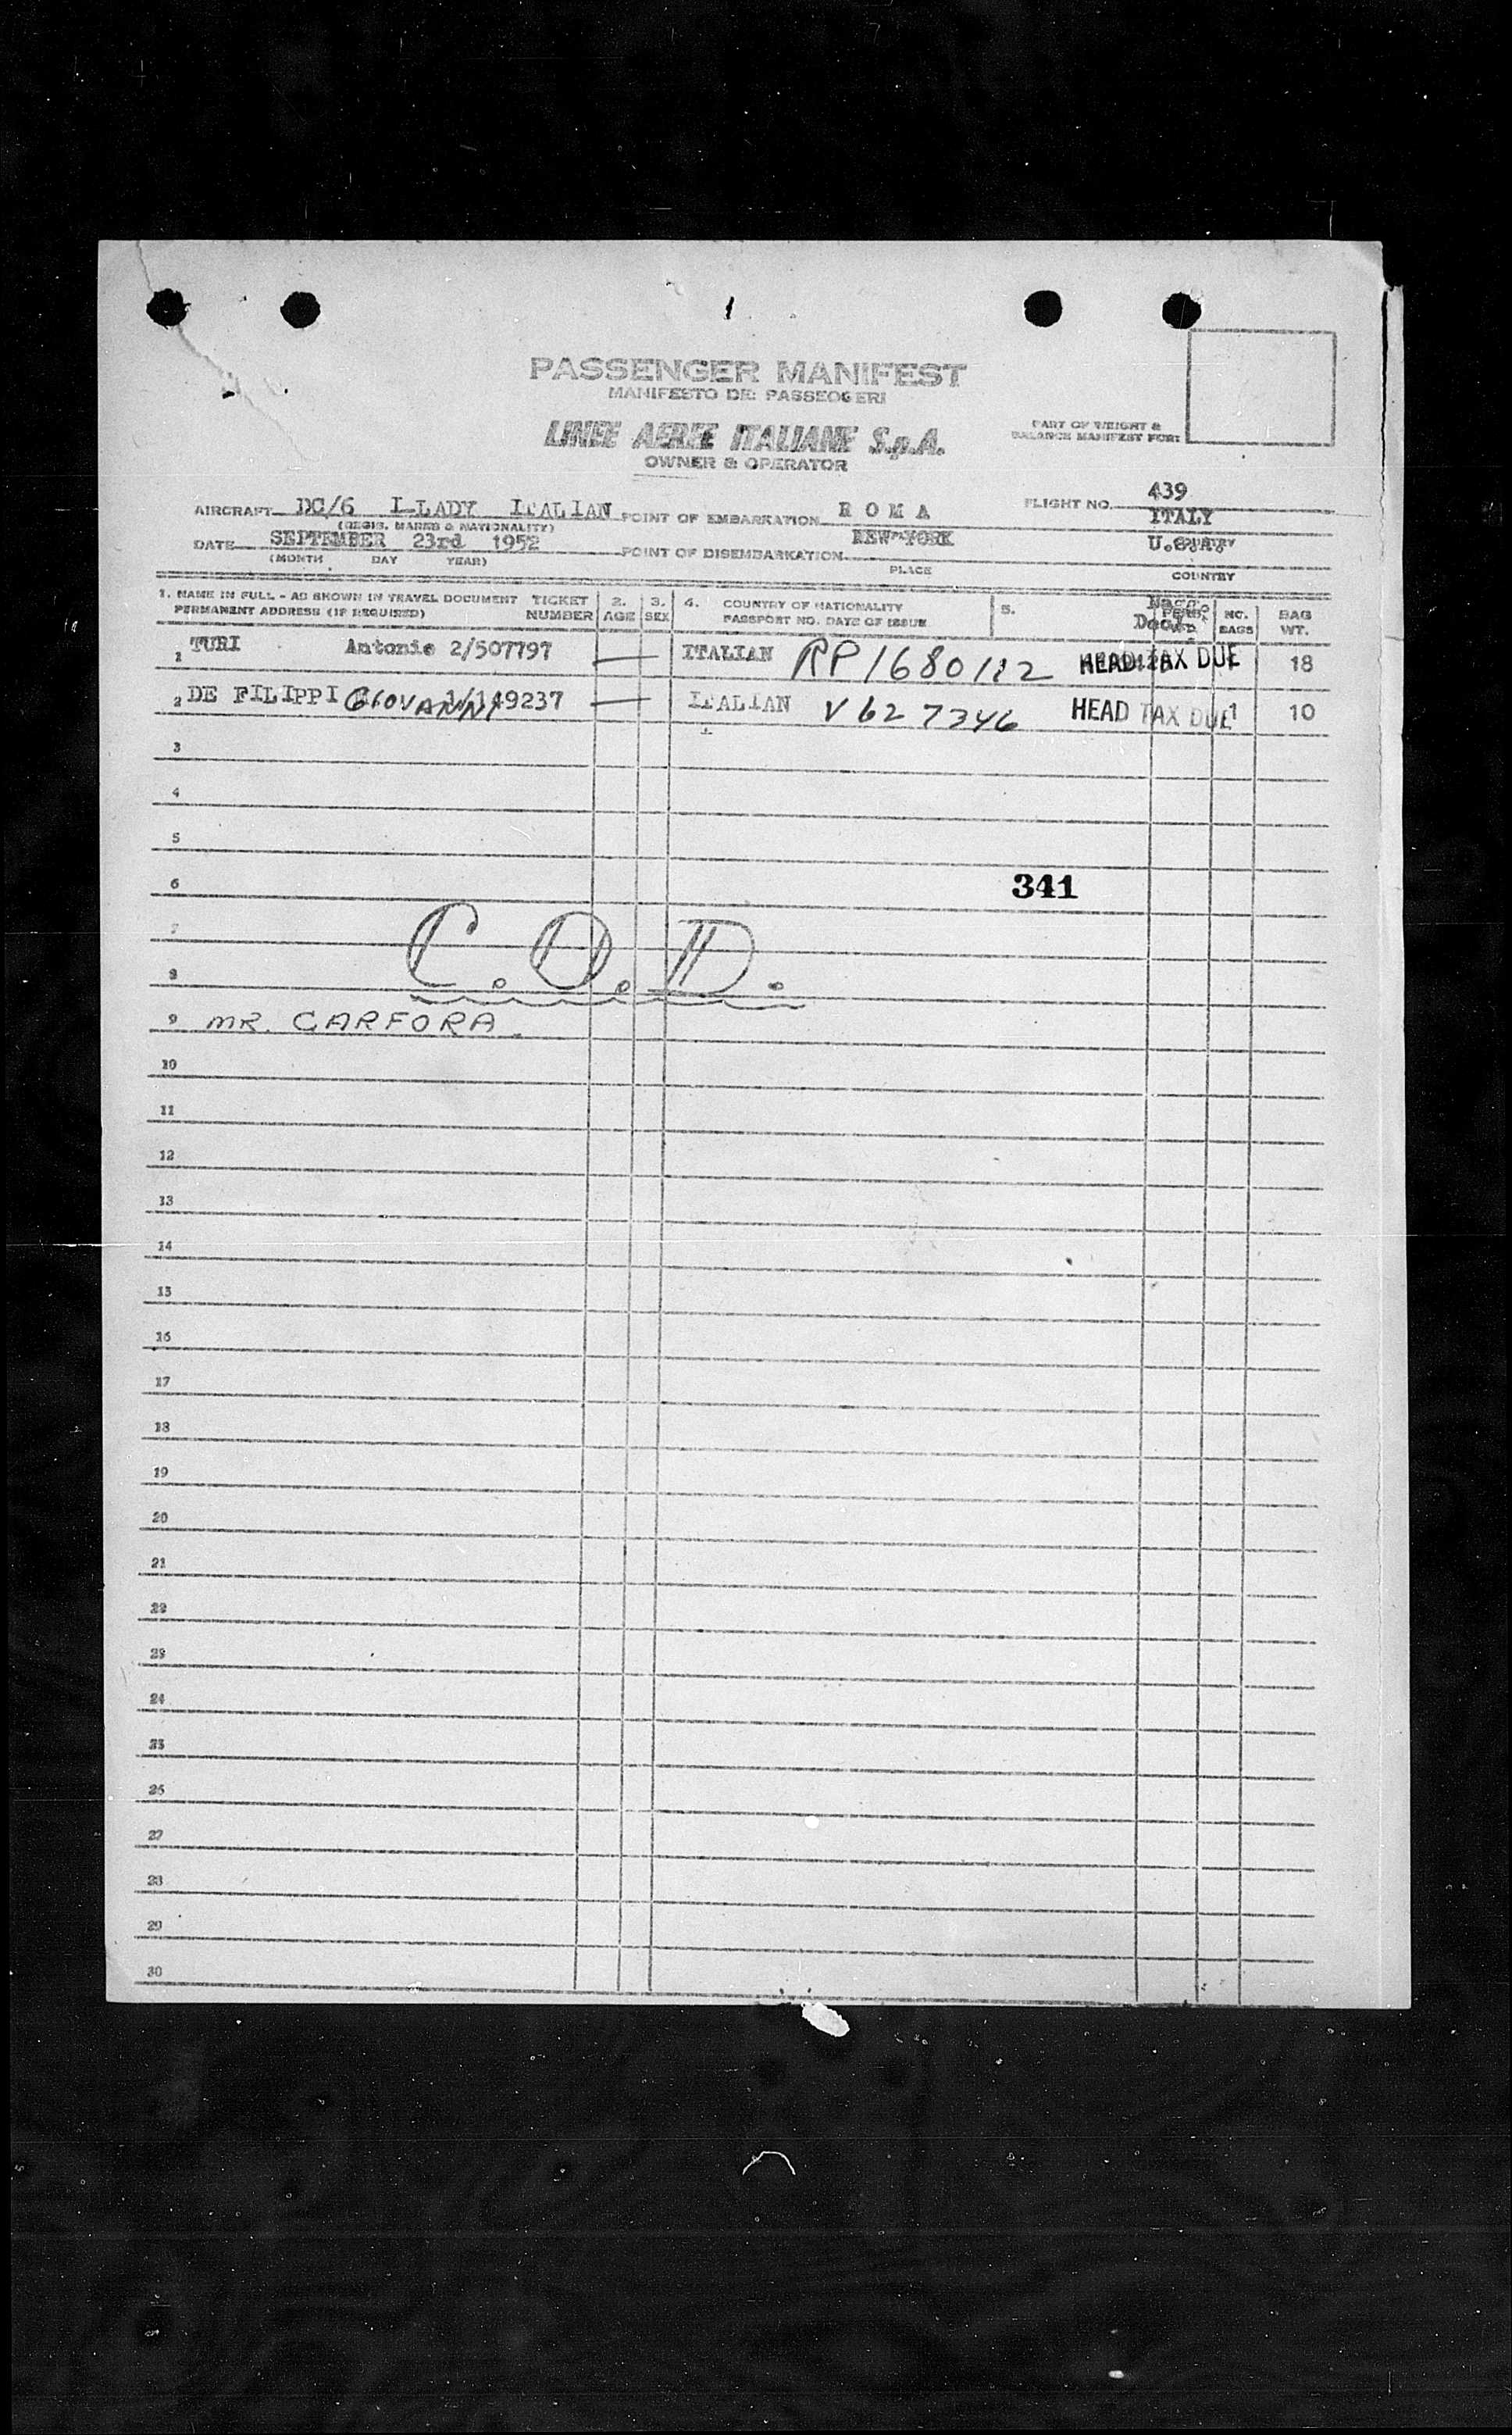 PASSENGER MANIFEST
MANIFESTO DEI PASSEGGERI
LINEE AEREE ITALIANE S.p.A.
OWNER & OPERATOR
PART OF WEIGHT &
BALANCE MANIFEST FOR:
AIRCRAFT DC/6 I-LADY ITALIAN POINT OF EMBARKATION R O M A FLIGHT NO. 439
(REGIS. MARKS & NATIONALITY) ITALY
DATE SEPTEMBER 23rd 1952 POINT OF DISEMBARKATION NEW-YORK U.S.A. COUNTRY
(MONTH DAY YEAR) PLACE COUNTRY
1. NAME IN FULL - AS SHOWN IN TRAVEL DOCUMENT TICKET 2. 3. 4. COUNTRY OF NATIONALITY 5. NO. BAG
PERMANENT ADDRESS (IF REQUIRED) NUMBER AGE SEX PASSPORT NO. DATE OF ISSUE BAGS WT.
1 TURI Antonio 2/507797 — ITALIAN RP1680112 HEAD TAX DUE 18
2 DE FILIPPI GIOVANNI 1/149237 — ITALIAN V 627346 HEAD TAX DUE 1 10
3
4
5
6 341
7
8 C.O.D.
9 MR. CARFORA
10
11
12
13
14
15
16
17
18
19
20
21
22
23
24
25
26
27
28
29
30